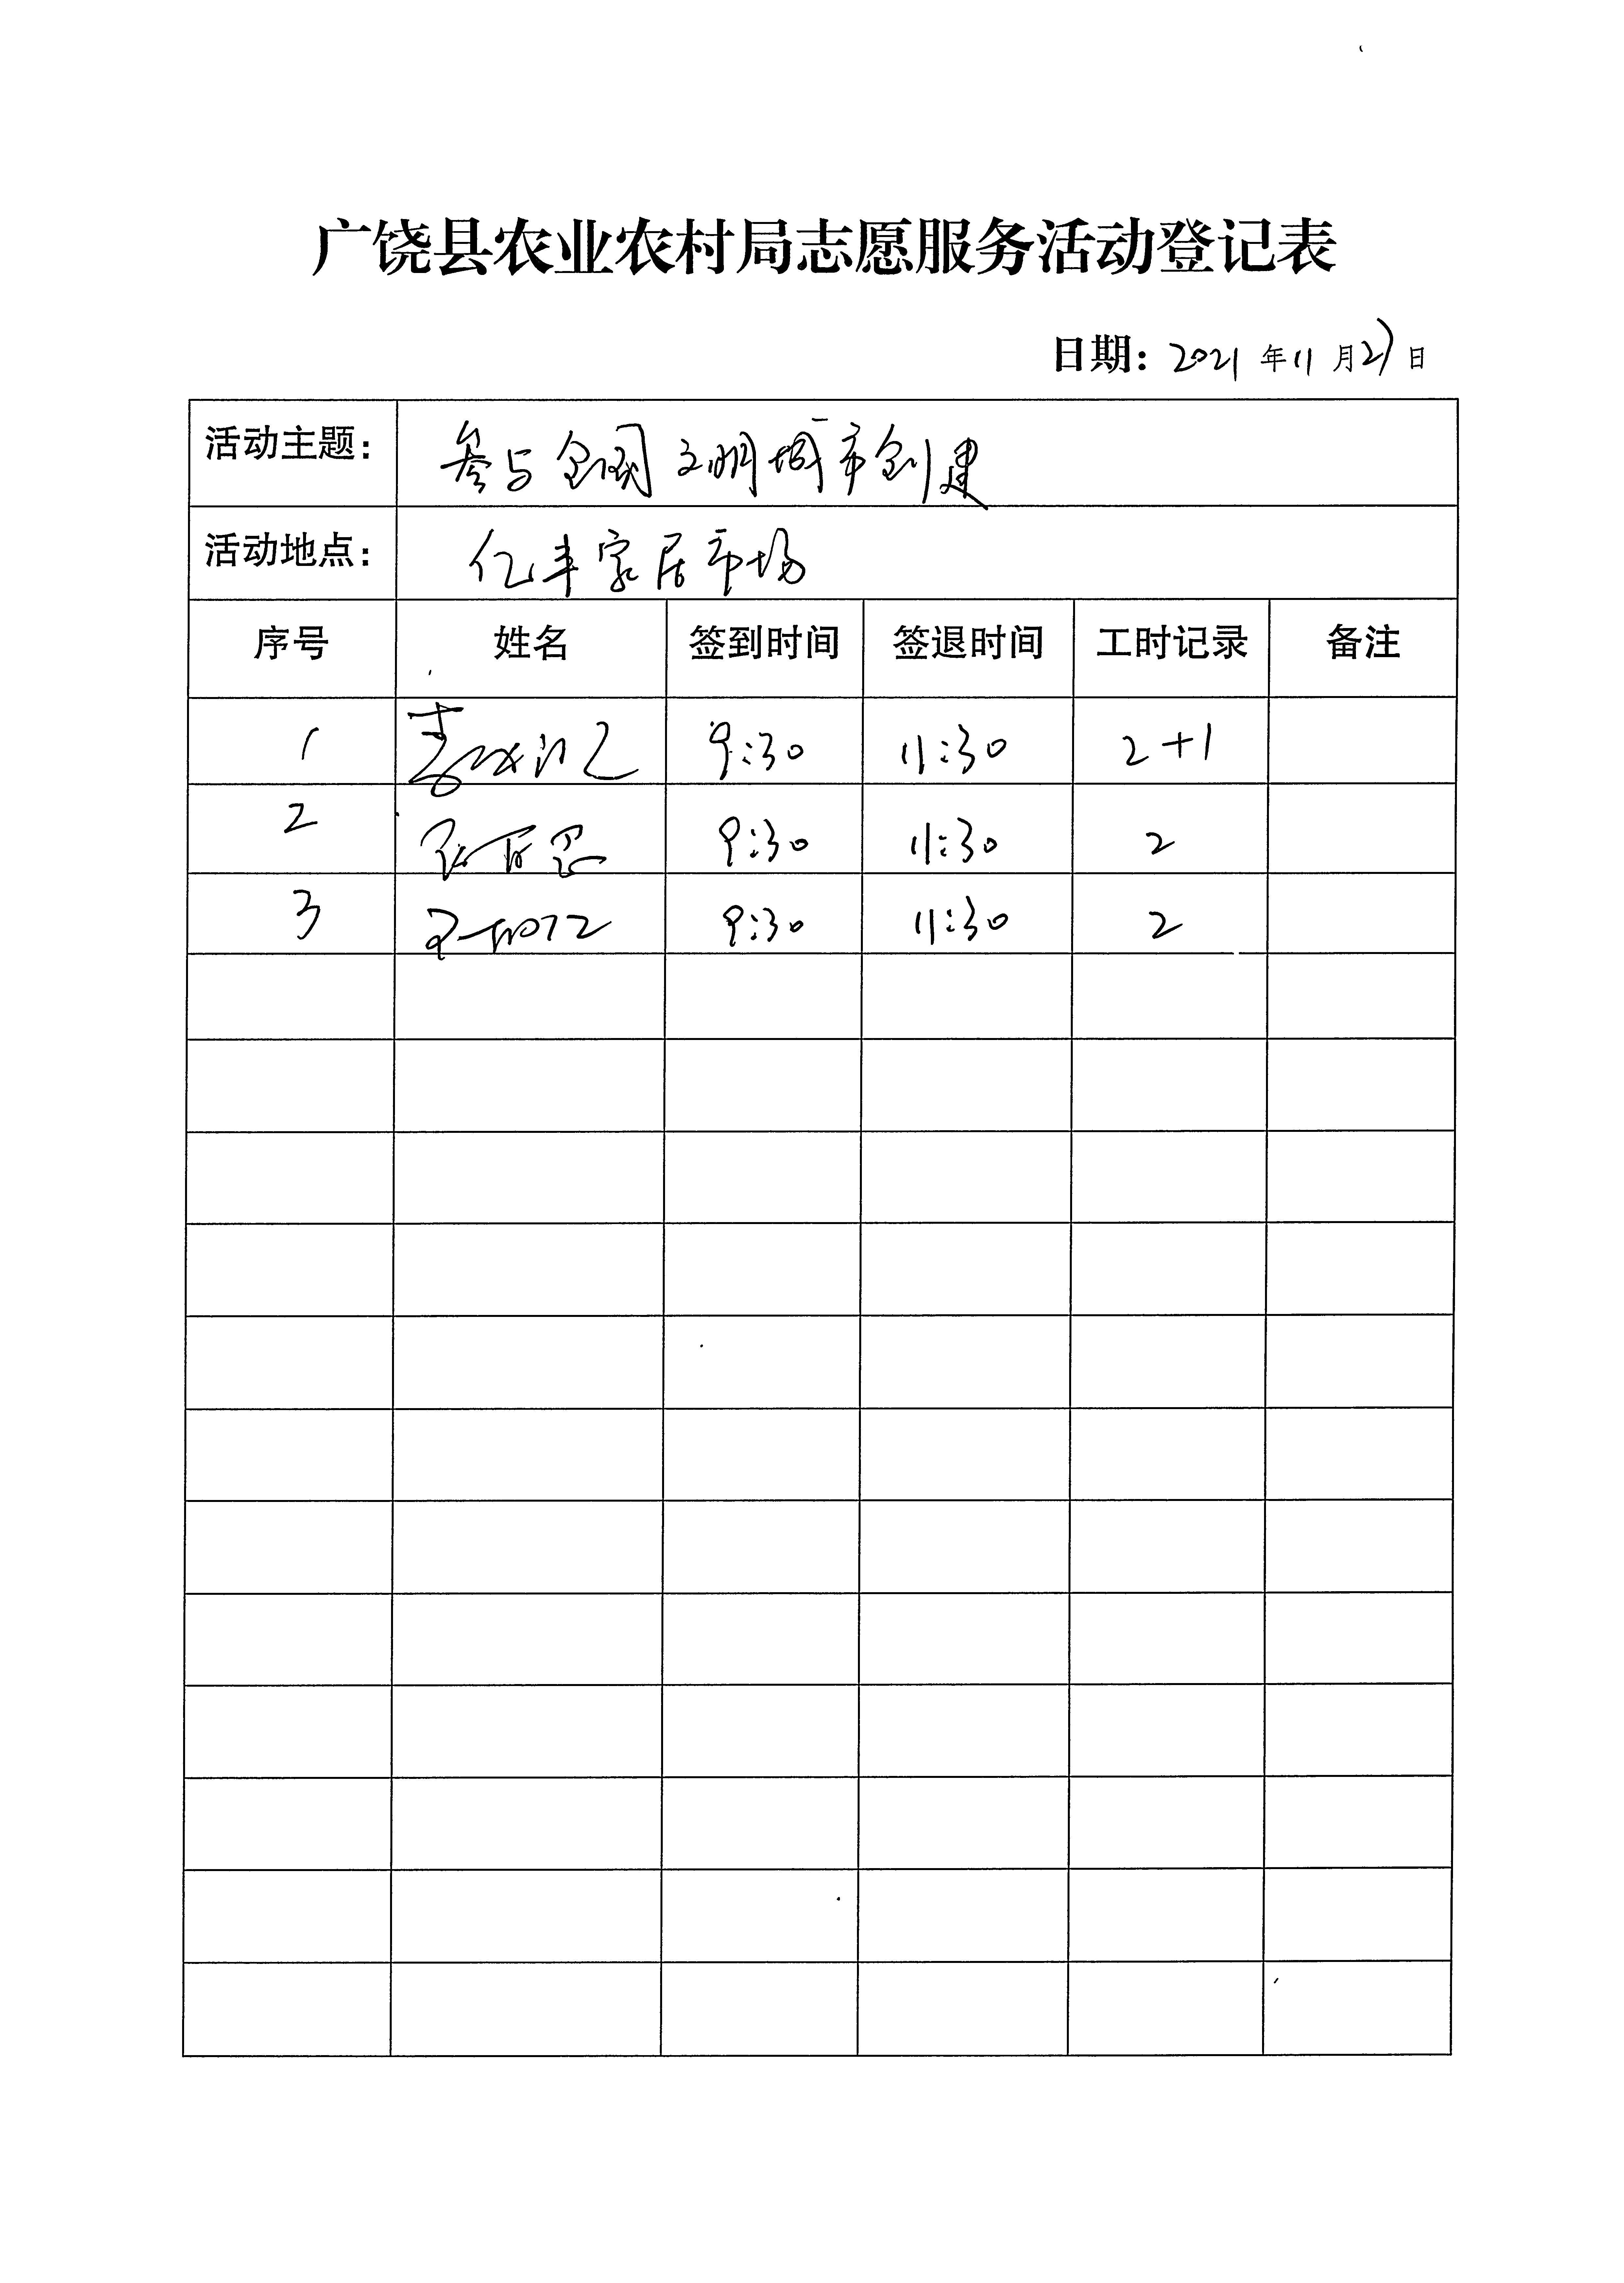 广饶县农业农村局志愿服务活动登记表
日期：2021年11月27日
活动主题： 参与全国文明城市创建
活动地点： 亿丰家居市场
序号 姓名 签到时间 签退时间 工时记录 备注
1 9:30 11:30 2+1
2 9:30 11:30 2
3 9:30 11:30 2